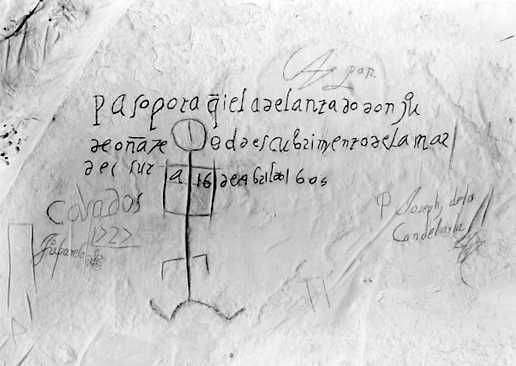 paso por aq̃i el adelantado don jũ
de oñate del descubrimiento de la mar
del sur a 16 de abril del 605
Casados
1727
P Joseph de la
Candelaria